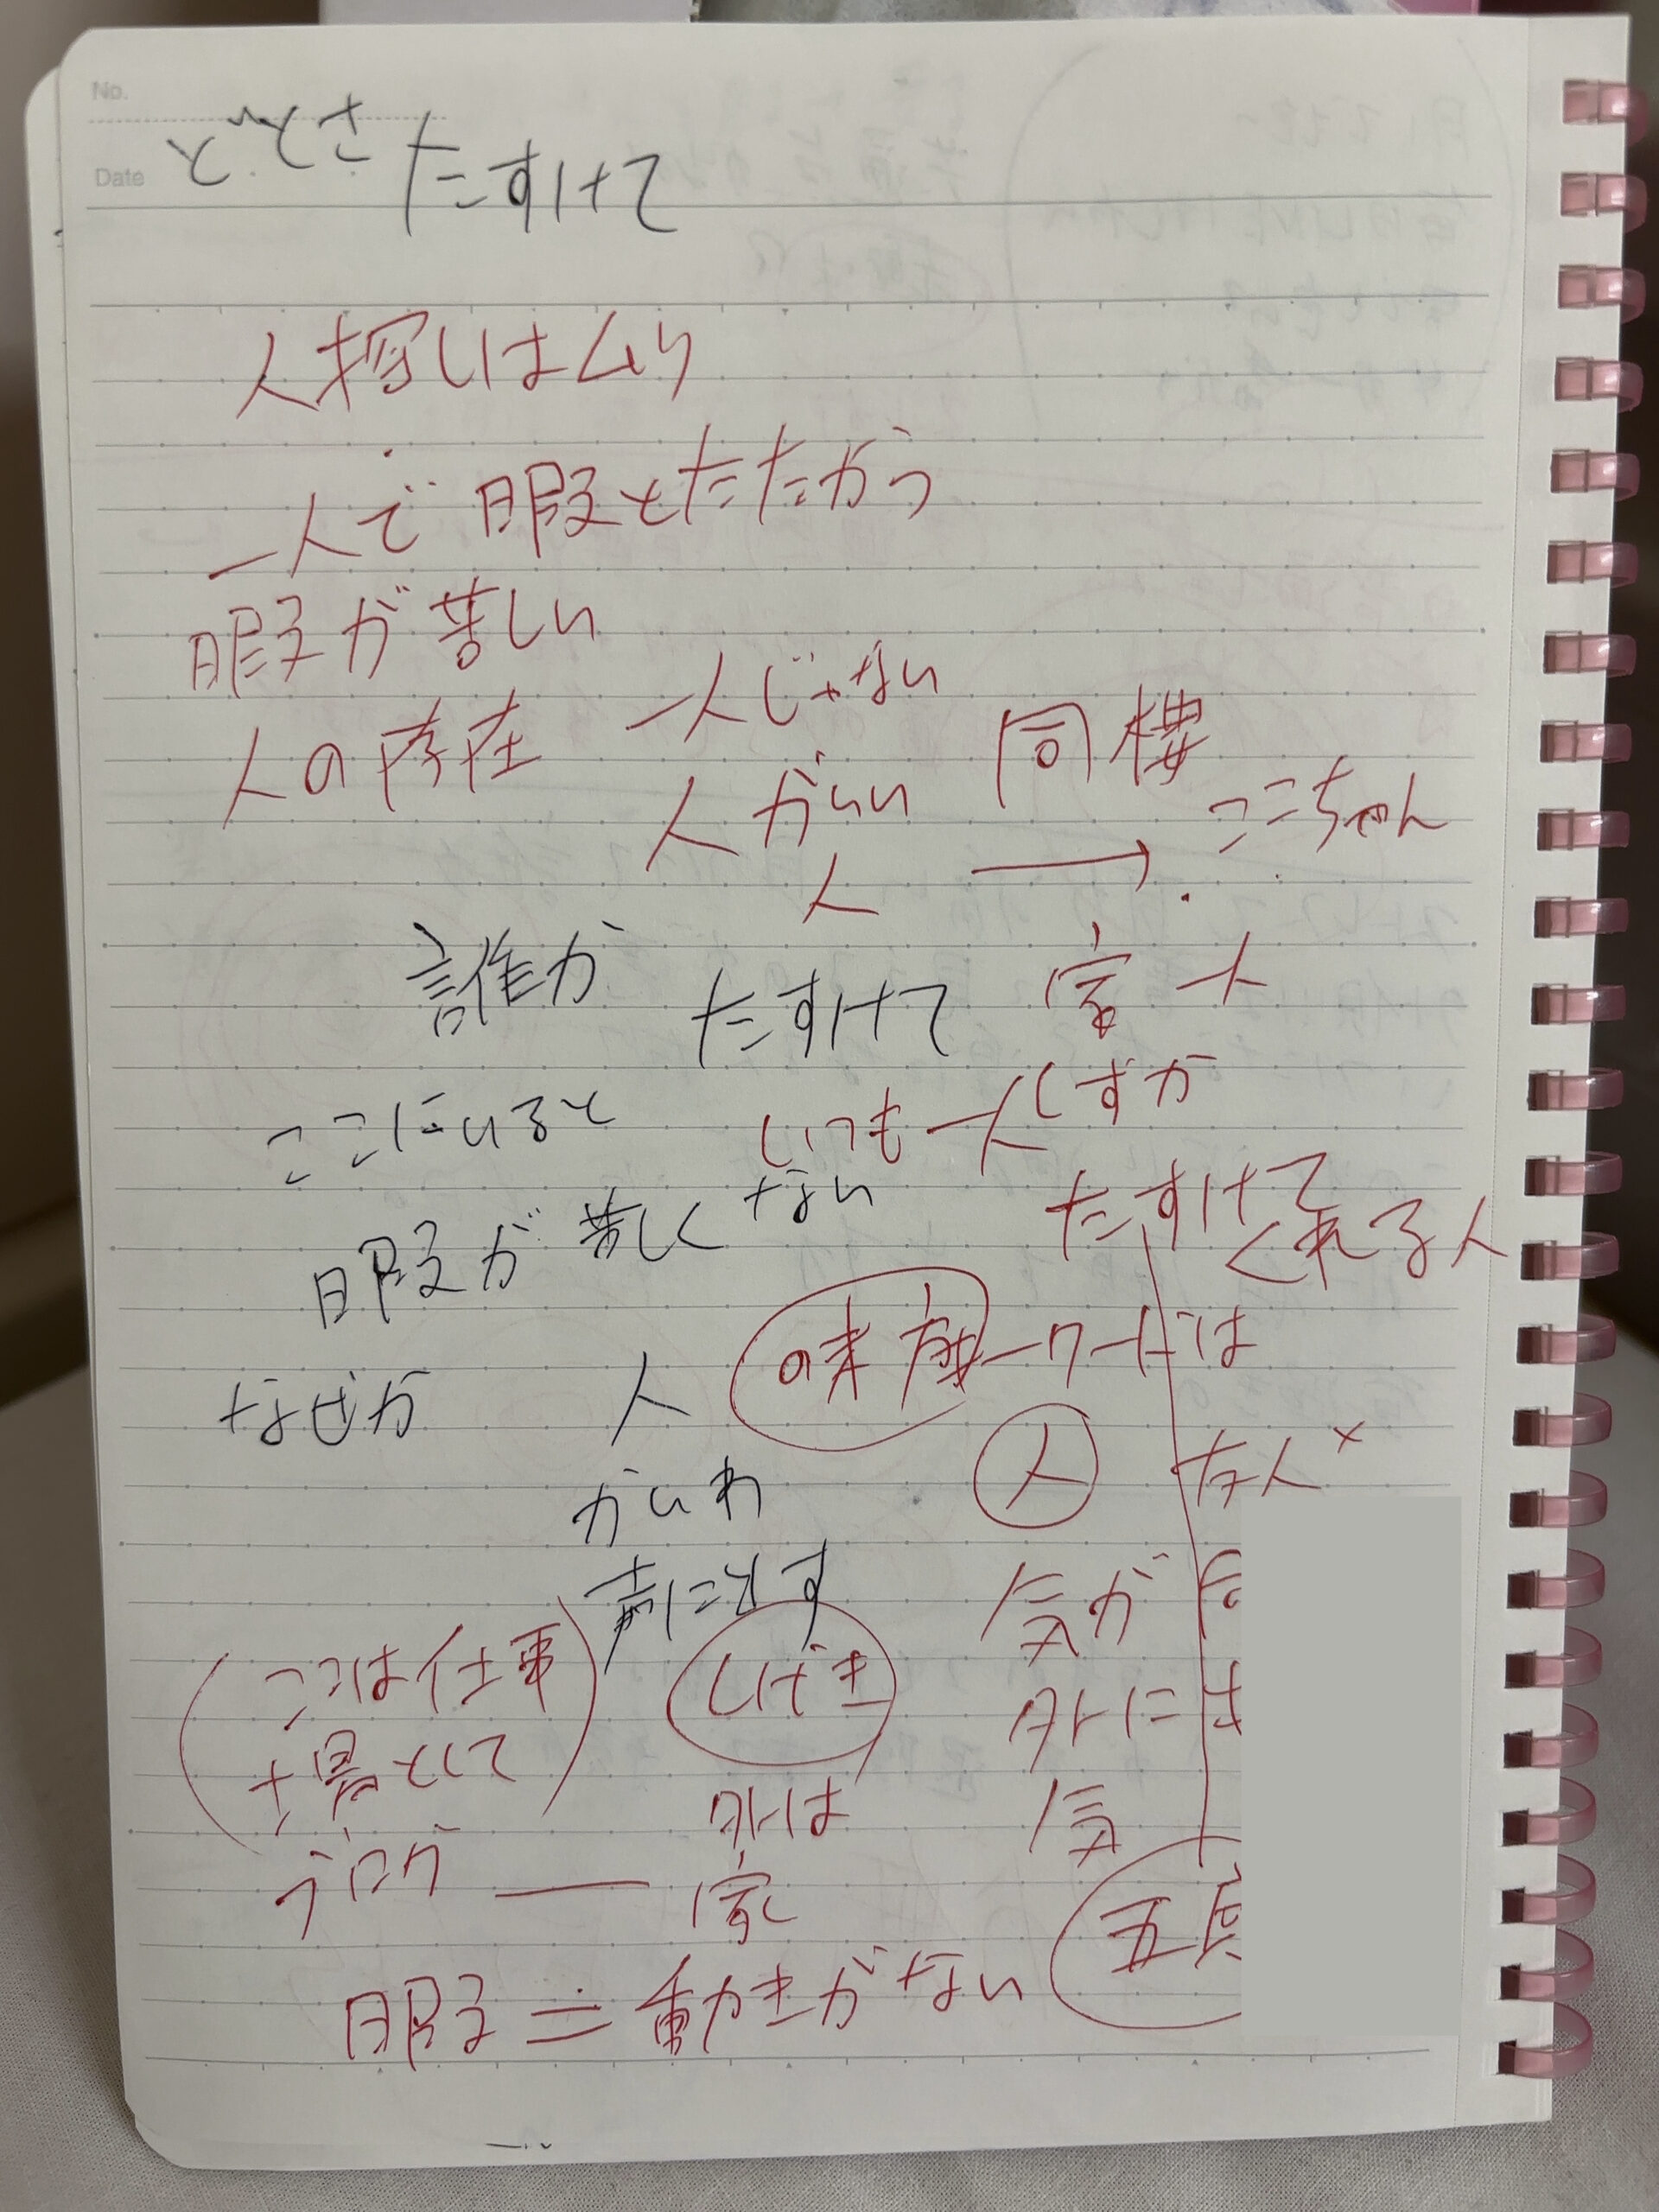 No.
Date
たすけて
人探しはムリ
一人で暇とたたかう
暇が苦しい
人の存在 一人じゃない
人がいい 同棲
人 → ここちゃん
誰か たすけて 家 一人
ここにいると いつも一人しずか
暇が苦しくない たすけてくれる人
ワードは
なぜか 人 人 友人×
かいわ
声にだす 気が
ここは仕事 しげき 外に
場として 外は 気
ブログ — 家
暇=動きがない 五